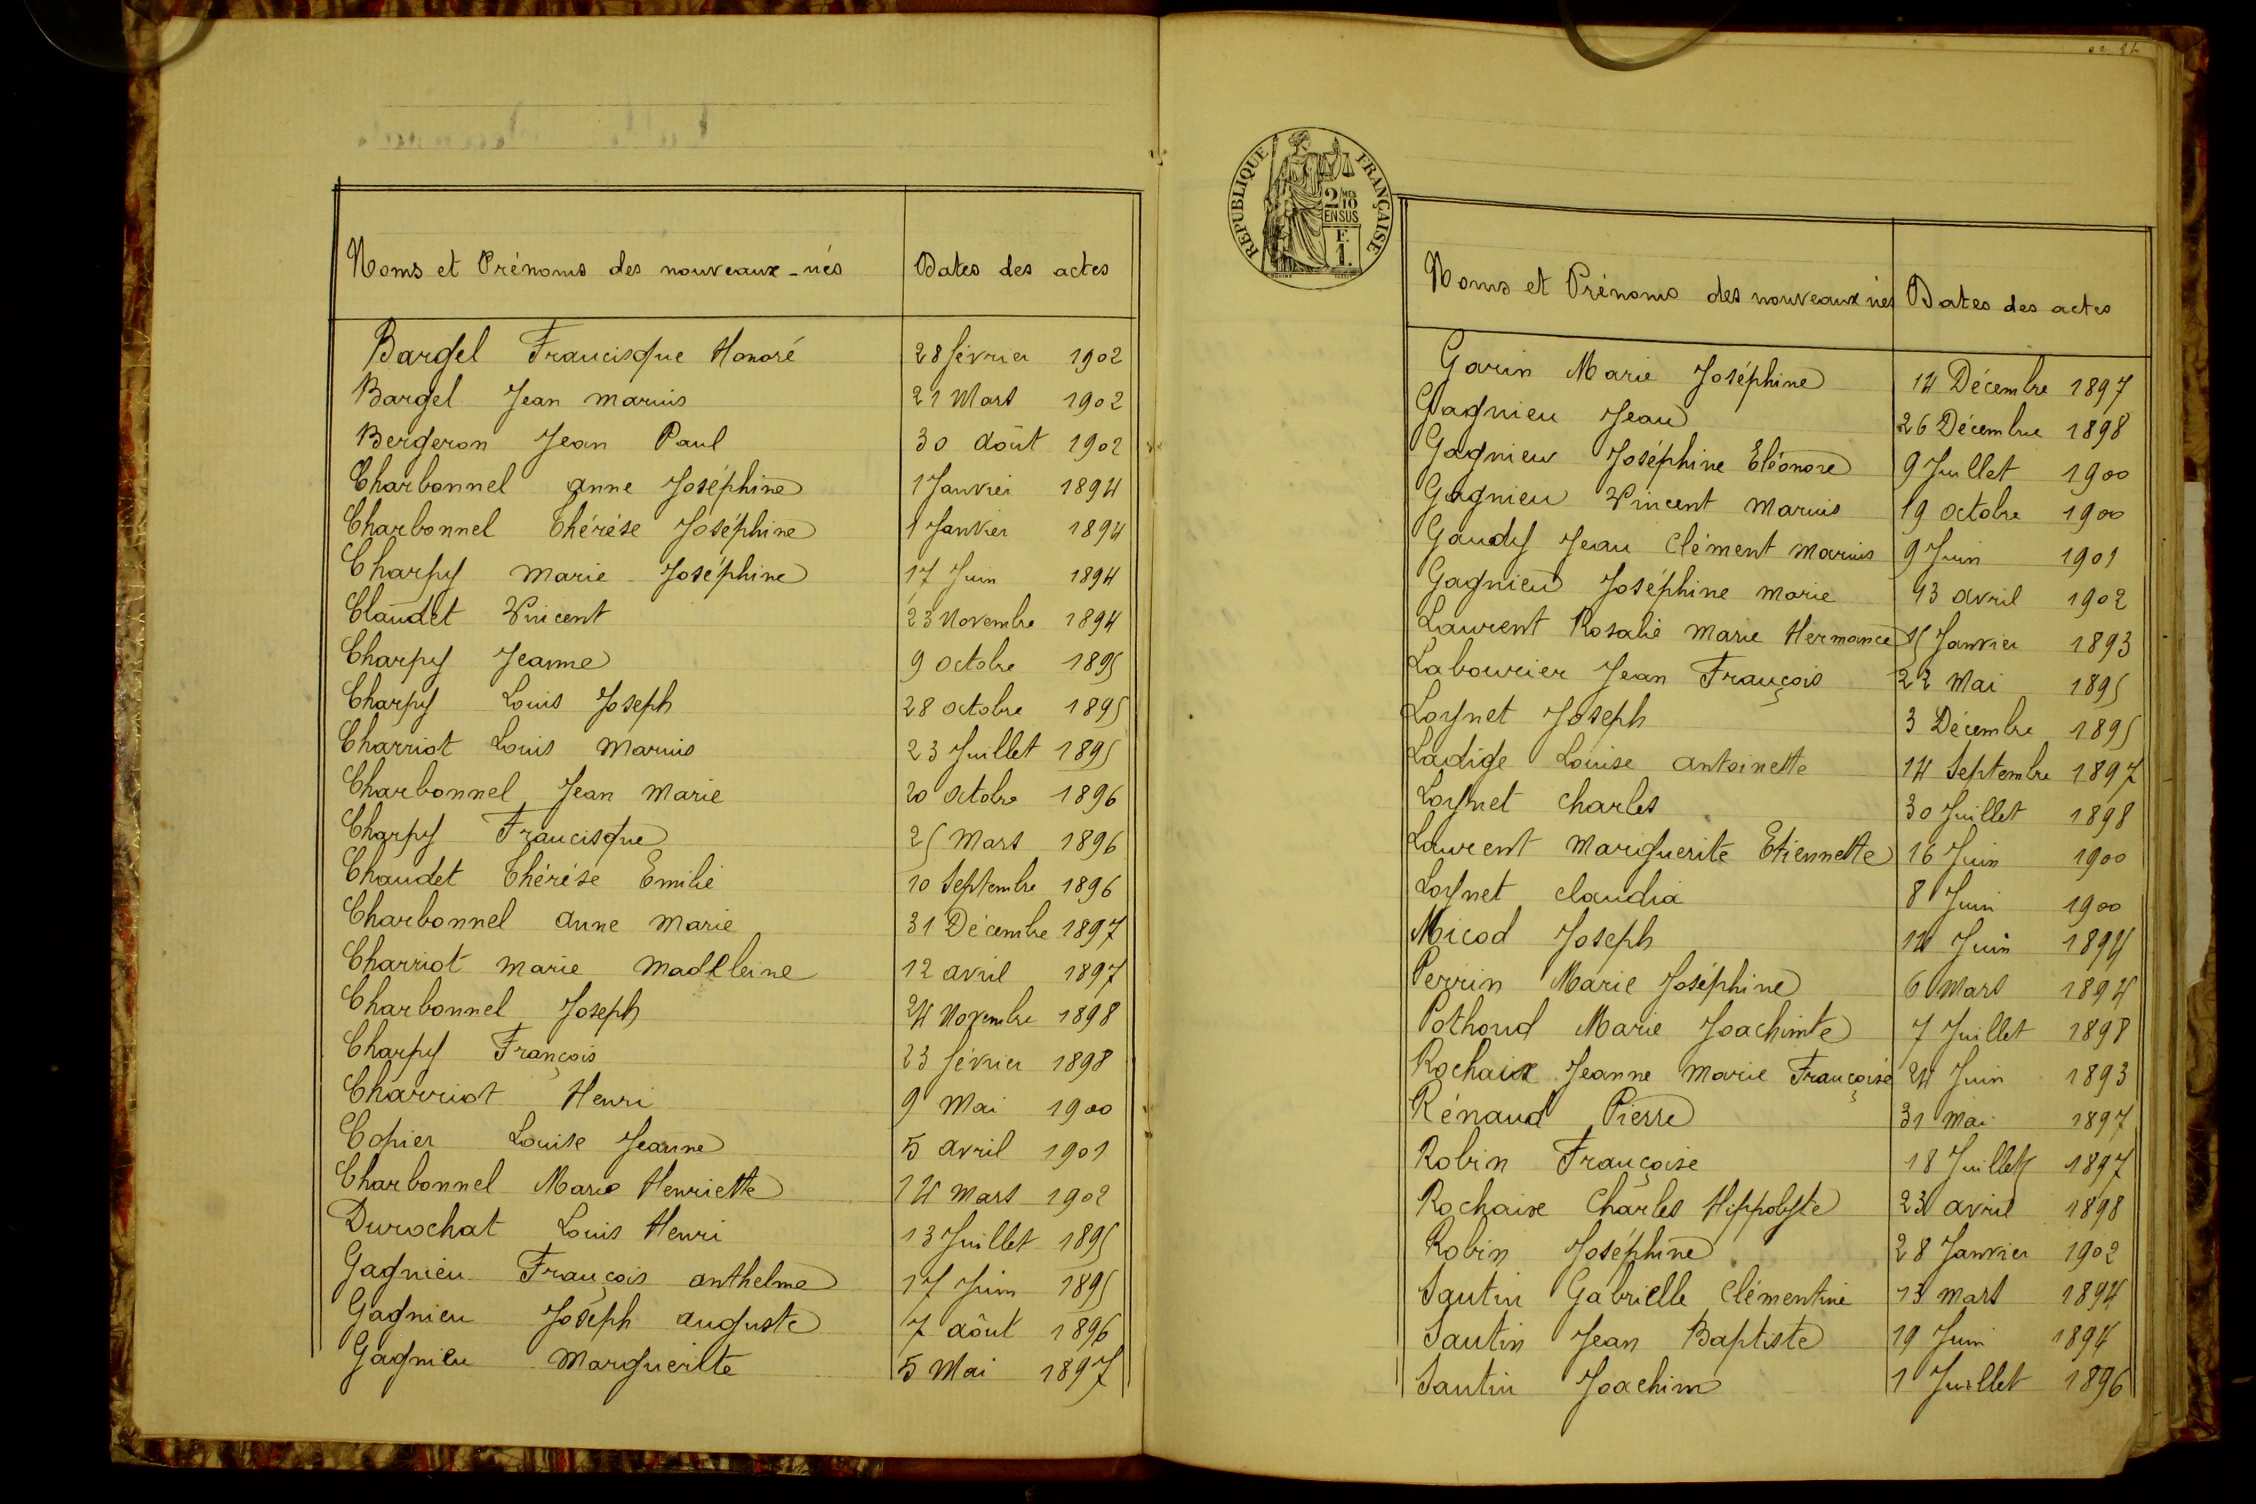 Noms et Prénoms des nouveaux-nés Dates des actes
Bargel Francisque Honoré 28 février 1902
Bargel Jean Marius 21 Mars 1902
Bergeron Jean Paul 30 Août 1902
Charbonnel Anne Joséphine 1 Janvier 1894
Charbonnel Thérèse Joséphine 1 Janvier 1894
Charpy Marie Joséphine 17 Juin 1894
Claudet Vincent 23 Novembre 1894
Charpy Jeanne 9 Octobre 1895
Charpy Louis Joseph 28 Octobre 1895
Charriot Louis Marius 23 Juillet 1895
Charbonnel Jean Marie 20 Octobre 1896
Charpy Francisque 25 Mars 1896
Chaudet Thérèse Emilie 10 Septembre 1896
Charbonnel Anne Marie 31 Décembre 1897
Charriot Marie Madeleine 12 Avril 1897
Charbonnel Joseph 24 Novembre 1898
Charpy François 23 février 1898
Charriot Henri 9 Mai 1900
Copier Louise Jeanne 5 Avril 1901
Charbonnel Marie Henriette 14 Mars 1902
Durochat Louis Henri 13 Juillet 1895
Gagnieu François Anthelme 17 Juin 1895
Gagnieu Joseph Auguste 7 Août 1896
Gagnieu Marguerite 5 Mai 1897
RÉPUBLIQUE FRANÇAISE
2/10 MES
EN SUS
F.
1.
Noms et Prénoms des nouveaux nés Dates des actes
Garin Marie Joséphine 14 Décembre 1897
Gagnieu Jean 26 Décembre 1898
Gagnieu Joséphine Eléonore 9 Juillet 1900
Gagnieu Vincent Marius 19 Octobre 1900
Gaudy Jean Clément Marius 9 Juin 1901
Gagnieu Joséphine Marie 13 Avril 1902
Laurent Rosalie Marie Hermance 15 Janvier 1893
Labourier Jean François 22 Mai 1895
Loynet Joseph 3 Décembre 1895
Ladige Louise Antoinette 14 Septembre 1897
Loynet Charles 30 Juillet 1898
Laurent Marguerite Etiennette 16 Juin 1900
Loynet Claudia 8 Juin 1900
Micod Joseph 14 Juin 1894
Perrin Marie Joséphine 6 Mars 1894
Pothoud Marie Joachimte 7 Juillet 1898
Rochaix Jeanne Marie Françoise 24 Juin 1893
Rénaud Pierre 31 Mai 1897
Robin Françoise 18 Juillet 1897
Rochaix Charles Hippolyte 23 Avril 1898
Robin Joséphine 28 Janvier 1902
Sautin Gabrielle Clémentine 13 Mars 1894
Sautin Jean Baptiste 19 Juin 1894
Sautin Joachim 1 Juillet 1896